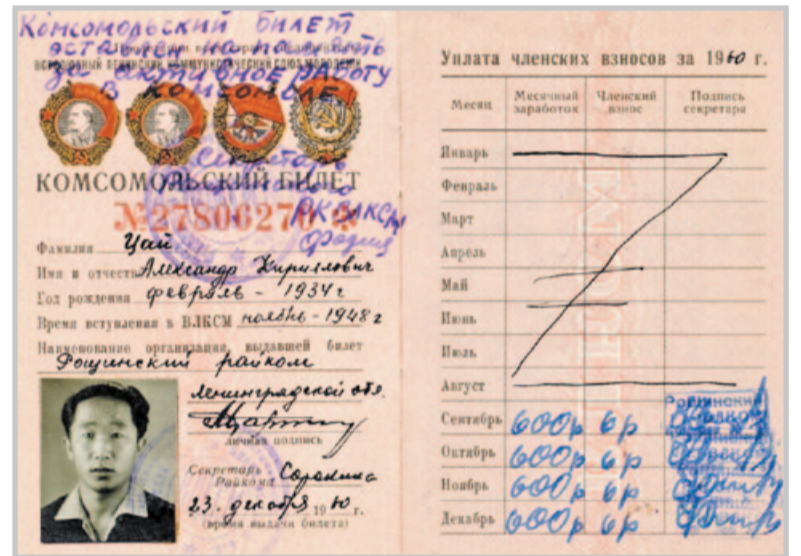 Комсомольский билет
оставлен на память
ВСЕСОЮЗНЫЙ ЛЕНИНСКИЙ КОММУНИСТИЧЕСКИЙ СОЮЗ МОЛОДЕЖИ
за активное работу
в комсомоле
Секретарь
КОМСОМОЛЬСКИЙ БИЛЕТ
РК ВЛКСМ
№27806270
Фамилия Цай
Имя и отчество Александр Кириллович
Год рождения февраль - 1934 г
Время вступления в ВЛКСМ ноябрь - 1948 г
Наименование организации, выдавшей билет
Рощинский райком
Ленинградской обл.
личная подпись
Секретарь Райкома Сорокина
23. декабря 1960 г.
(время выдачи билета)
Уплата членских взносов за 1960 г.
Месяц Месячный заработок Членский взнос Подпись секретаря
Январь
Февраль
Март
Апрель
Май
Июнь
Июль
Август
Сентябрь 600р 6р
Октябрь 600р 6р
Ноябрь 600р 6р
Декабрь 600р 6р